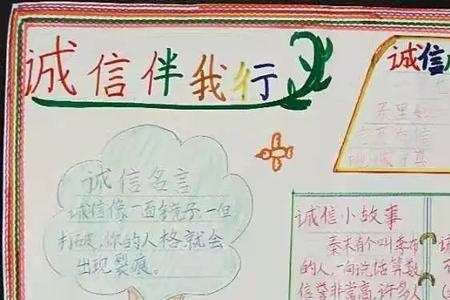 诚信伴我行
诚信
诚信名言
诚信像一面镜子,一但
打破,你的人格就会
出现裂痕。
诚信小故事
秦末有个叫季布
的人,一向说话算数
信誉非常高,许多人